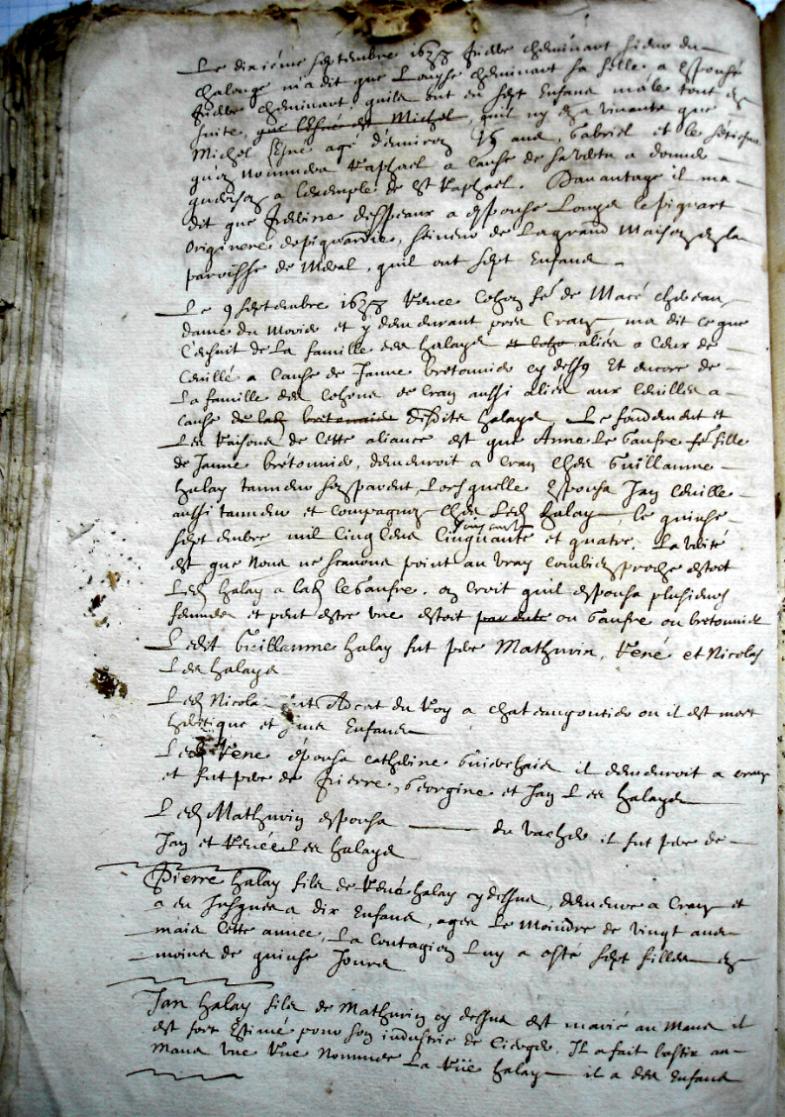 Le dixiéme septembre 1633 Pierre cheminant sieur du
chalonge m'a dit que Louyse cheminant sa fille a espousé
Pierre cheminant, quils ont eu sept Enfans mâle tout de
suite, que l'esné est Michel, quil ny en a vivants que
Michel esné agé d'environ 15 ans, Gabriel et le
nommerent Raphael a cause de sa
guerison a l'exemple de St Raphael. Davantage il ma
dit que a espousé Louys le piquart
Originere de piquardie, seineur de La grand Maison en la
paroisse de Meral, quil ont sept Enfans
Le 9 septembre 1633 Renee Cohon fe de Macé
dame du et y demeurant près Craon ma dit ce que
s'ensuit de La famille des halays aliés a Ceux de
Ceuillé a Cause de Janne bretonnier cy dessus Et encore de
La famille des Cohons de Cran aussi aliés aux Ceuilles a
cause de lad bretonniere desdits halays Le fondement et
Les Raisons de Cette aliance est que Anne Le Gaufre fille
de Janne bretonnier, demeuroit a Cran Ches Guillaume
halay tanneur son parent, Lors quelle espousa Jan Ceuille
aussi tanneur et compagnon Ches Led halay le quinse
septembre mil cinq Cens Cinquante et quatre. La vérité
est que Nous ne scavons point au vray combien proche estoit
Led halay a lad le Gaufre. on croit quil espousa plusieurs
femmes et peut estre une estoit parente ou Gaufre ou bretonnier
Ledit Guillaume halay fut père Mathurin, René et Nicolas
Les halays
Led Nicolas fut Advcat du Roy a chateaugontier ou il est mort
hérétique et sans Enfans
Led René épousa catherine il demeuroit a cran
et fut père de Pierre, Georgine et Jan Les halays
Led Mathurin espousa du vacher il fut père de
Jan et Renée Les halays
Pierre halay fils de René halay cy dessus, demeure a Cran et
a eu Jusques a dix Enfans, agés Le Moindre de vingt ans
mais Cette année, La Contagion Luy a osté sept filles en
moins de quinse Jours
Jan halay fils de Mathurin cy dessus est marié au Mans il
est fort Estimé pour son industrie de Cierges. Il a fait bastir au
Mans une Rüe Nommée La Rüe halay il a des Enfans